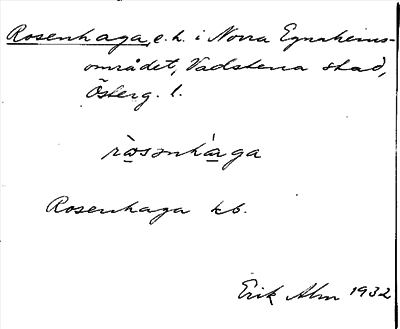 Rosenhaga, e.h. i Norra Egnahems-
området, Vadstena stad,
Österg. l.
ròsənhàga
Rosenhaga kb.
Erik Alm 1932